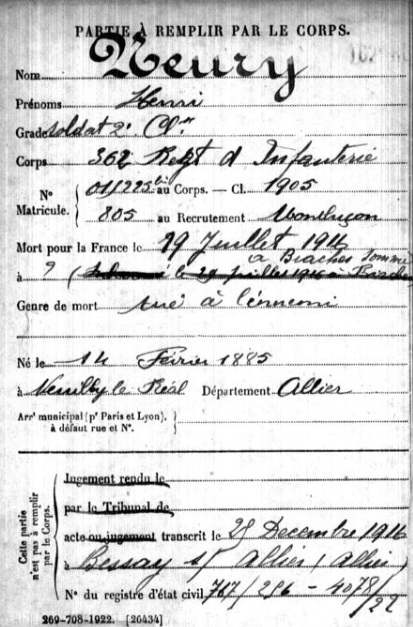 PARTIE À REMPLIR PAR LE CORPS.
Nom Fleury
Prénoms Henri
Grade soldat 2e Cl.
Corps 362 Regt d Infanterie
N° Matricule. 011225 bis au Corps. — Cl. 1905
805 au Recrutement Montluçon
Mort pour la France le 19 Juillet 1916
a Biaches Somme
à ? ( le 29 juillet 1916 à Biaches
Genre de mort tué à l'ennemi
Né le 14 Février 1885
à Neuilly le Réal Département Allier
Arrt municipal (pr Paris et Lyon), à défaut rue et N°.
Cette partie n'est pas à remplir par le Corps.
Jugement rendu le
par le Tribunal de
acte ou jugement transcrit le 25 Decembre 1916
à Bessay s/ Allier (Allier)
N° du registre d'état civil 767/296 - 4078/22
269-708-1922. [26434]